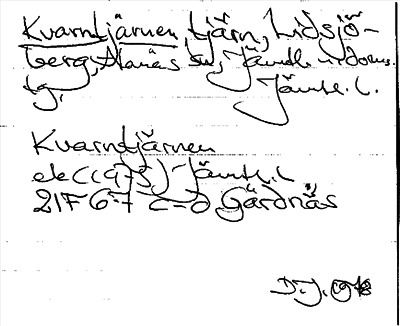 Kvarntjärnen, tjärn, Lidsjö-
berg, Alanäs sn, Jämtl. n. doms.
tg. Jämtl. l.
Kvarntjärnen
ek Jämtl. l
21F 6-7 c-d Gärdnäs
D.J. 1978